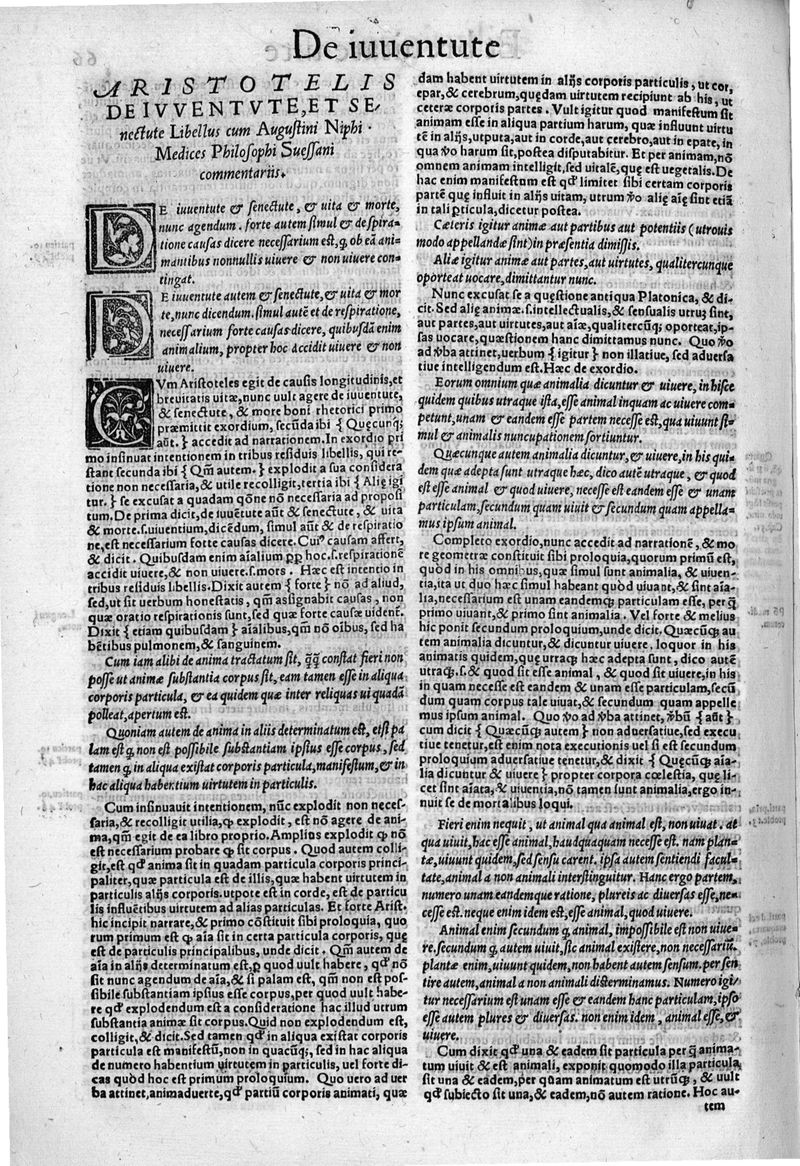 De iuuentute
ARISTOTELIS
DE IVVENTVTE, ET SE/
nectute Libellus cum Augustini Niphi
Medices Philosophi Suessani
commentariis.
DE iuuentute & senectute, & uita & morte,
nunc agendum. forte autem simul & de spira-
tione causas dicere necessarium est, q, ob eā ani-
mantibus nonnullis uiuere & non uiuere con-
tingat.
DE iuuentute autem & senectute, & uita & mor
te, nunc dicendum. simul autē et de respiratione,
necessarium forte causas dicere, quibusdā enim
animalium, propter hoc accidit uiuere & non
uiuere.
CVm Aristoteles egit de causis longitudinis, et
breuitatis uitæ, nunc uult agere de iuuentute,
& senectute, & more boni rhetorici primo
præmittit exordium, secūda ibi { Quęcunq;
aūt. } accedit ad narrationem. In exordio pri
mo insinuat intentionem in tribus residuis libellis, qui re-
stant secunda ibi { Qm̄ autem. } explodit a sua considera
tione non necessaria, & utile recolligit, tertia ibi { Alię igi
tur. } se excusat a quadam qōne nō necessaria ad proposi
tum. De prima dicit, de iuuētute aūt & senectute, & uita
& morte .s. uiuentium, dicēdum, simul aūt & de respiratio
ne, est necessarium forte causas dicere. Cuiꝰ causam affert,
& dicit. Quibusdam enim aīalium ꝓp hoc .s. respirationē
accidit uiuere, & non uiuere .s. mors. Hæc est intentio in
tribus residuis libellis. Dixit autem { forte } nō ad aliud,
sed, ut sit uerbum honestatis, qm̄ assignabit causas, non
quæ oratio respirationis sunt, sed quæ forte causæ uident̄.
Dixit { etiam quibusdam } aīalibus, qm̄ nō oībus, sed ha
bētibus pulmonem, & sanguinem.
Cum iam alibi de anima tractatum sit, q̄q̄ constat fieri non
posse ut animæ substantia corpus sit, eam tamen esse in aliqua
corporis particula, & ea quidem quæ inter reliquas ui quadā
polleat, apertum est.
Quoniam autem de anima in aliis determinatum est, et si pa
lam est q, non est possibile substantiam ipsius esse corpus, sed
tamen q, in aliqua existat corporis particula, manifestum, & in
hac aliqua habentium uirtutem in particulis.
Cum insinuauit intentionem, nūc explodit non neces-
saria, & recolligit utilia, ꝗ explodit, est nō agere de ani-
ma, qm̄ egit de ea libro proprio. Amplius explodit ꝙ nō
est necessarium probare ꝙ sit corpus. Quod autem colli-
git, est qď anima sit in quadam particula corporis princi-
paliter, quæ particula est de illis, quæ habent uirtutem in
particulis alijs corporis. utpote est in corde, est de particu
lis influētibus uirtutem ad alias particulas. Et forte Arist.
hic incipit narrare, & primo cōstituit sibi proloquia, quo
rum primum est ꝙ aīa sit in certa particula corporis, quę
est de particulis principalibus, unde dicit. Qm̄ autem de
aīa in alijs determinatum est, ꝑ quod uult habere, qď nō
sit nunc agendum de aīa, & si palam est, qm̄ non est pos-
sibile substantiam ipsius esse corpus, per quod uult habe-
re qď explodendum est a consideratione hac illud utrum
substantia animæ sit corpus. Quid non explodendum est,
colligit, & dicit. Sed tamen qď in aliqua existat corporis
particula est manifestū, non in quacūq;, sed in hac aliqua
de numero habentium uirtutem in particulis, uel forte di-
cas quòd hoc est primum proloquium. Quo uero ad uer
ba attinet, animaduerte, qď partiū corporis animati, quæ
dam habent uirtutem in alijs corporis particulis, ut cor,
epar, & cerebrum, quędam uirtutem recipiunt ab his, ut
ceteræ corporis partes. Vult igitur quod manifestum sit
animam esse in aliqua partium harum, quæ influunt uirtu
tē in alijs, utputa, aut in corde, aut cerebro, aut in epate, in
qua ꝟo harum sit, postea disputabitur. Et per animam, nō
omnem animam intelligit, sed uitalē, quę est uegetalis. De
hac enim manifestum est qď limitet sibi certam corporis
partē quę influit in alijs uitam, utrum ꝟo alię aīę sint etiā
in tali ꝑticula, dicetur postea.
Cæteris igitur animæ aut partibus aut potentiis (utrouis
modo appellandæ sint) in præsentia dimissis.
Aliæ igitur animæ aut partes, aut uirtutes, qualitercunque
oporteat uocare, dimittantur nunc.
Nunc excusat se a quęstione antiqua Platonica, & di-
cit. Sed alię animæ .s. intellectualis, & sensualis utruȝ sint,
aut partes, aut uirtutes, aut aīæ, qualitercūq; oporteat, ip-
sas uocare, quæstionem hanc dimittamus nunc. Quo ꝟo
ad ꝟba attinet, uerbum { igitur } non illatiue, sed aduersa
tiue intelligendum est. Hæc de exordio.
Eorum omnium quæ animalia dicuntur & uiuere, in hisce
quidem quibus utraque ista, esse animal inquam ac uiuere com-
petunt, unam & eandem esse partem necesse est, qua uiuunt si-
mul & animalis nuncupationem sortiuntur.
Quæcunque autem animalia dicuntur, & uiuere, in his qui-
dem quæ adepta sunt utraque hæc, dico autē utraque, & quod
est esse animal & quod uiuere, necesse est eandem esse & unam
particulam, secundum quam uiuit & secundum quam appella-
mus ipsum animal.
Completo exordio, nunc accedit ad narrationē, & mo
re geometræ constituit sibi proloquia, quorum primū est,
quòd in his omnibus, quæ simul sunt animalia, & uiuen-
tia, ita ut duo hæc simul habeant quòd uiuant, & sint aīa-
lia, necessarium est unam eandemq; particulam esse, per q̄
primo uiuant, & primo sint animalia. Vel forte & melius
hic ponit secundum proloquium, unde dicit. Quæcūq; au
tem animalia dicuntur, & dicuntur uiuere, loquor in his
animatis quidem, quę utraq; hæc adepta sunt, dico autē
utraq; .s. & quod sit esse animal, & quod sit uiuere, in his
in quam necesse est eandem & unam esse particulam, secū
dum quam corpus tale uiuat, & secundum quam appelle
mus ipsum animal. Quo ꝟo ad ꝟba attinet, ꝟbū { aūt }
cum dicit { Quæcūq; autem } non aduersatiue, sed execu
tiue tenetur, est enim nota executionis uel si est secundum
proloquium aduersatiue tenetur, & dixit { Quęcūq; aīa-
lia dicuntur & uiuere } propter corpora cœlestia, quę li-
cet sint aīata, & uiuentia, nō tamen sunt animalia, ergo in-
nuit se de mortalibus loqui.
Fieri enim nequit, ut animal qua animal est, non uiuat. at
qua uiuit, hac esse animal, haudquaquam necesse est. nam plan-
tæ, uiuunt quidem, sed sensu carent. ipsa autem sentiendi facul-
tate, animal a non animali interstinguitur. Hanc ergo partem,
numero unam eandemque ratione, plureis ac diuersas esse, ne-
cesse est. neque enim idem est, esse animal, quod uiuere.
Animal enim secundum q, animal, impossibile est non uiue-
re. secundum q, autem uiuit, sic animal existere, non necessariū.
plantæ enim, uiuunt quidem, non habent autem sensum. per sen
tire autem, animal a non animali disterminatus. Numero igi-
tur necessarium est unam esse & eandem hanc particulam, ipso
esse autem plures & diuersas. non enim idem, animal esse, &
uiuere.
Cum dixit qď una & eadem sit particula per q̄ anima-
tum uiuit & est animali, exponit quomodo illa particula
sit una & eadem, per quam animatum est utrūq;, & uult
qď subiecto sit una, & eadem, nō autem ratione. Hoc au-
tem